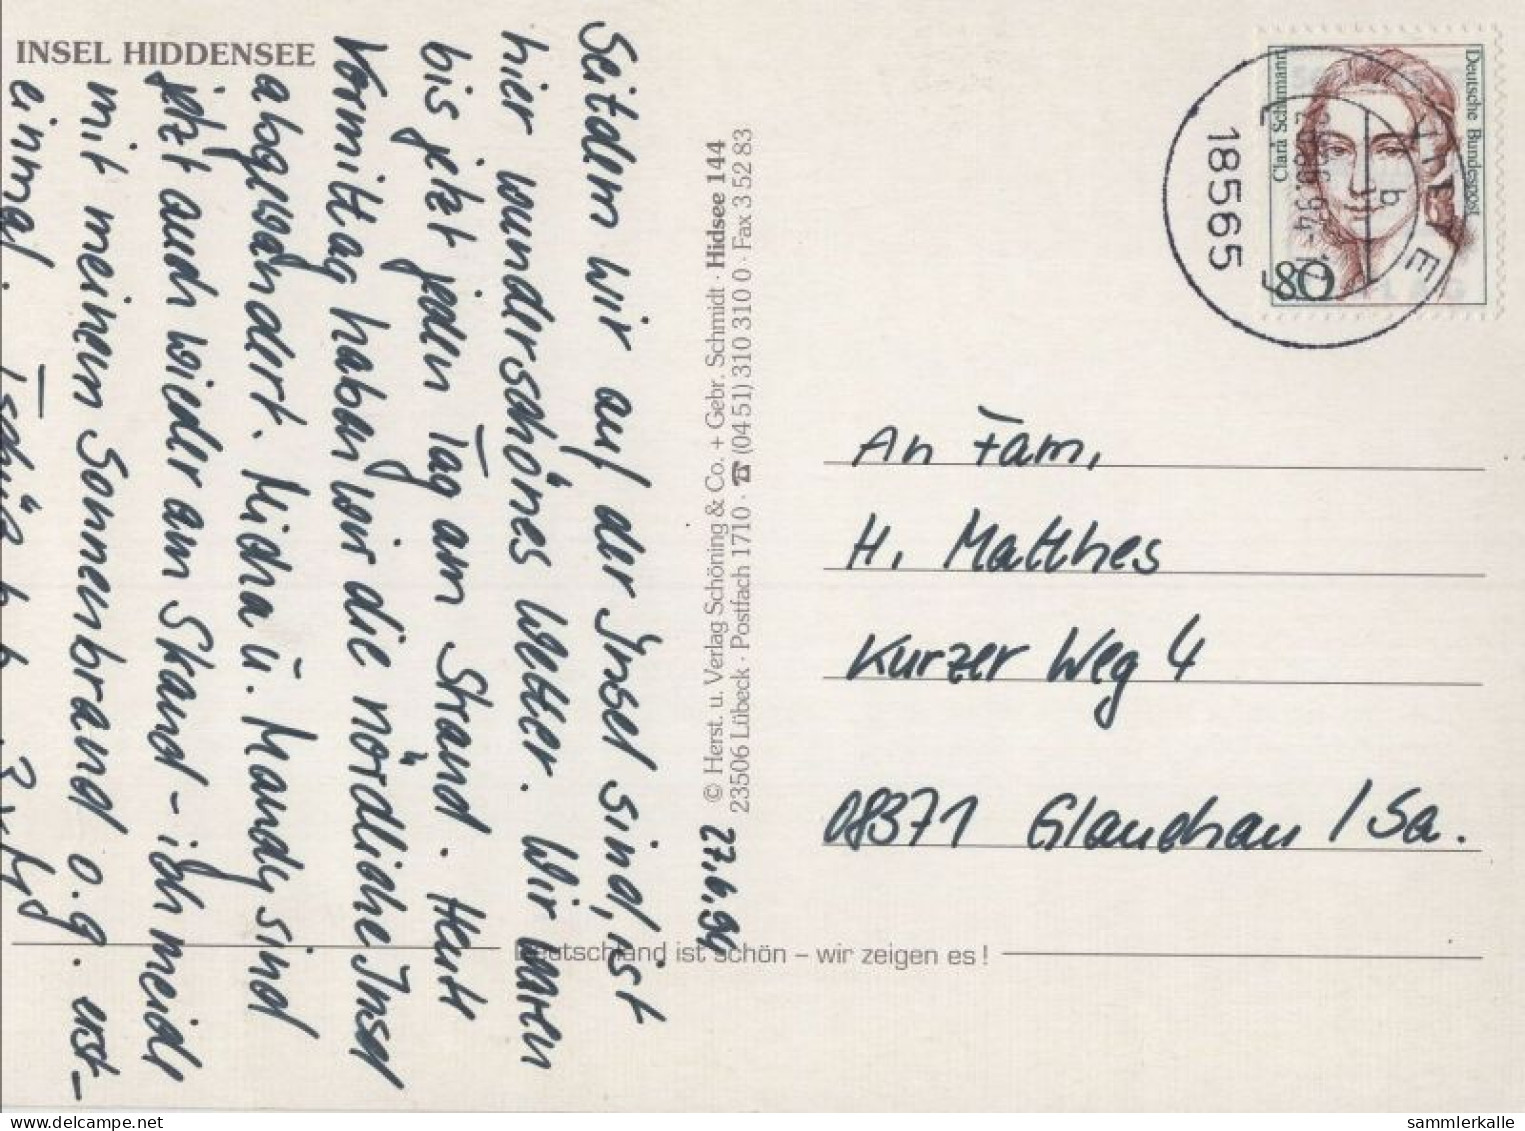 INSEL HIDDENSEE
Seitdem wir auf der Insel sind, ist
hier wunderschönes Wetter. Wir waren
bis jetzt jeden Tag am Strand. Heute
Vormittag haben wir die nördliche Insel
abgewandert. Micha u. Mandy sind
jetzt auch wieder am Strand - ich meide
mit meinem Sonnenbrand o.g. erst-
einmal. Tschüß
27.6.94
© Herst. u. Verlag Schöning & Co. + Gebr. Schmidt · Hidsee 144
23506 Lübeck · Postfach 1710 · ☎ (04 51) 310 310 0 · Fax 3 52 83
Deutsche Bundespost
Clara Schumann
80
18565
b
An Fam.
H. Matthes
Kurzer Weg 4
08371 Glauchau / Sa.
Deutschland ist schön – wir zeigen es !
sammlerkalle